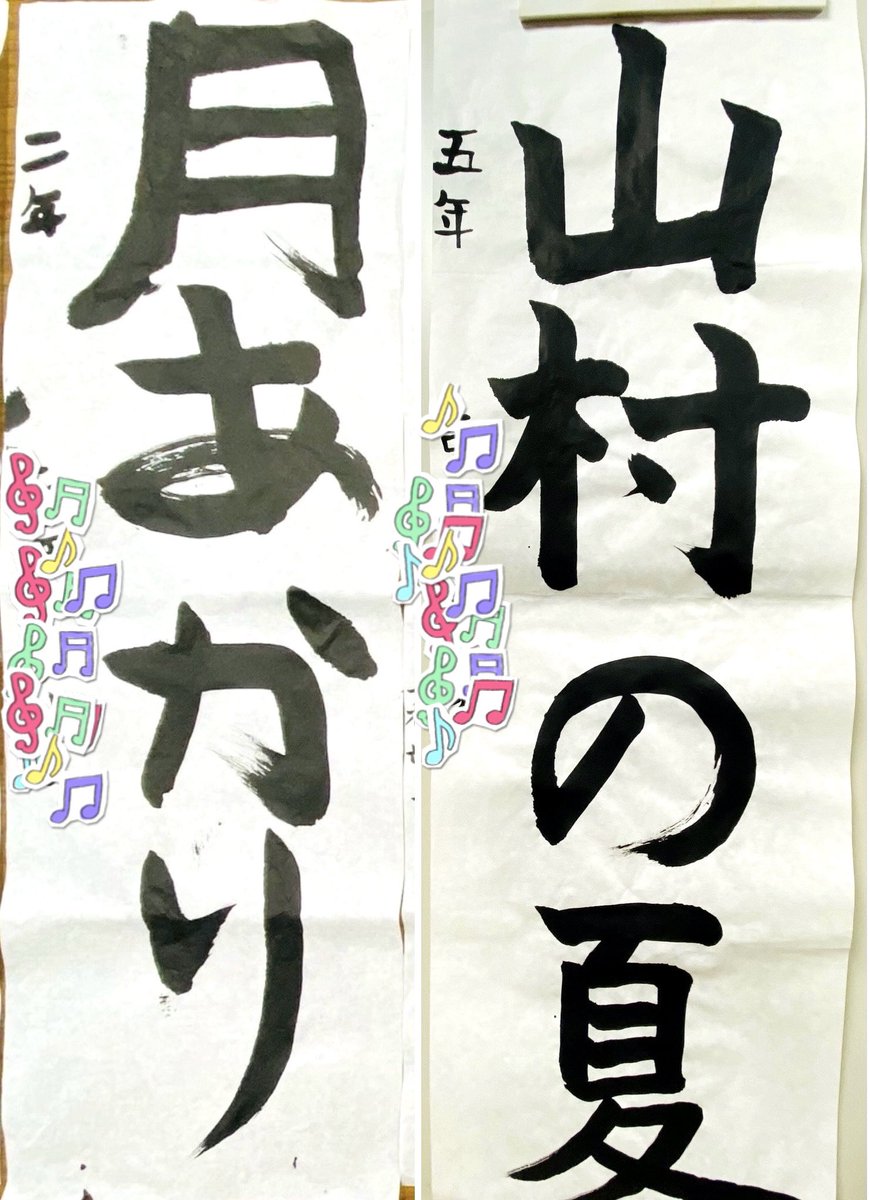 月あかり
二年
山村の夏
五年